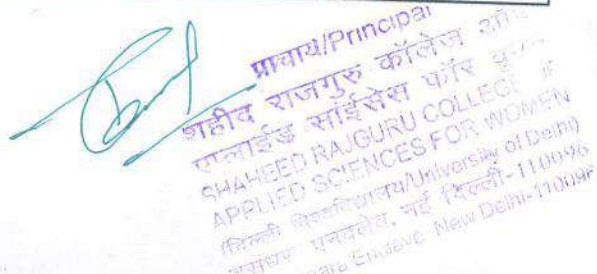 प्राचार्य/Principal
शहीद राजगुरु कॉलेज ऑफ
एप्लाईड साईंसेस फॉर
SHAHEED RAJGURU COLLEGE OF
APPLIED SCIENCES FOR WOMEN
(दिल्ली विश्वविद्यालय/University of Delhi)
एनक्लेव, नई दिल्ली-110096
Enclave New Delhi-110096